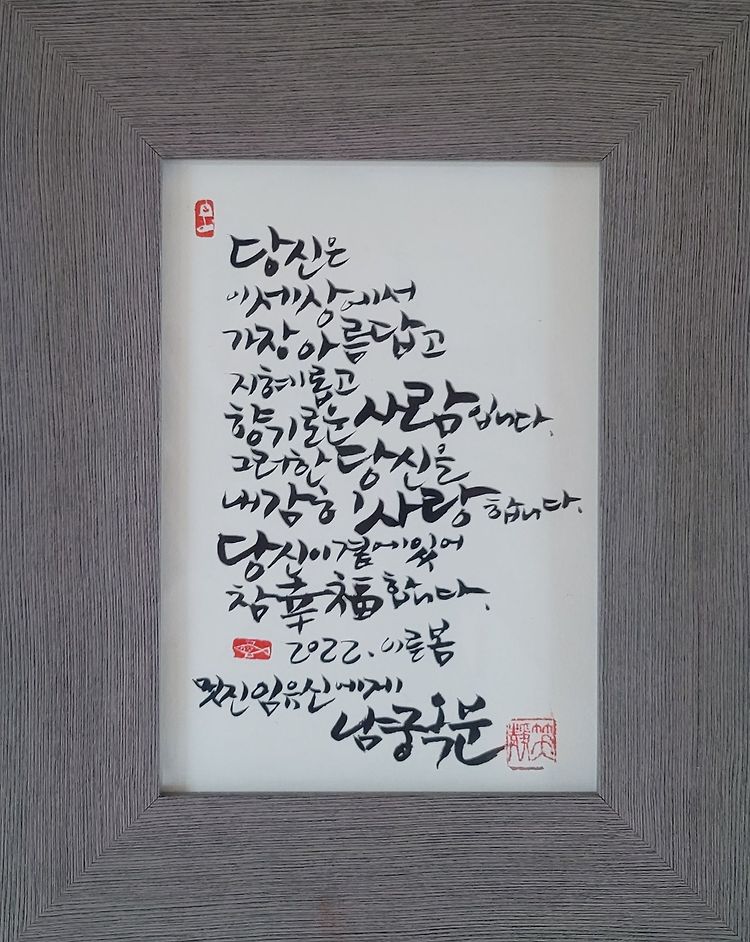 당신은
이세상에서
가장 아름답고
지혜롭고
향기로운 사람입니다.
그러한 당신을
내 감히 사랑합니다.
당신이 곁에 있어
참 幸福합니다.
2022. 이른봄
멋진 임유신에게
남궁옥분